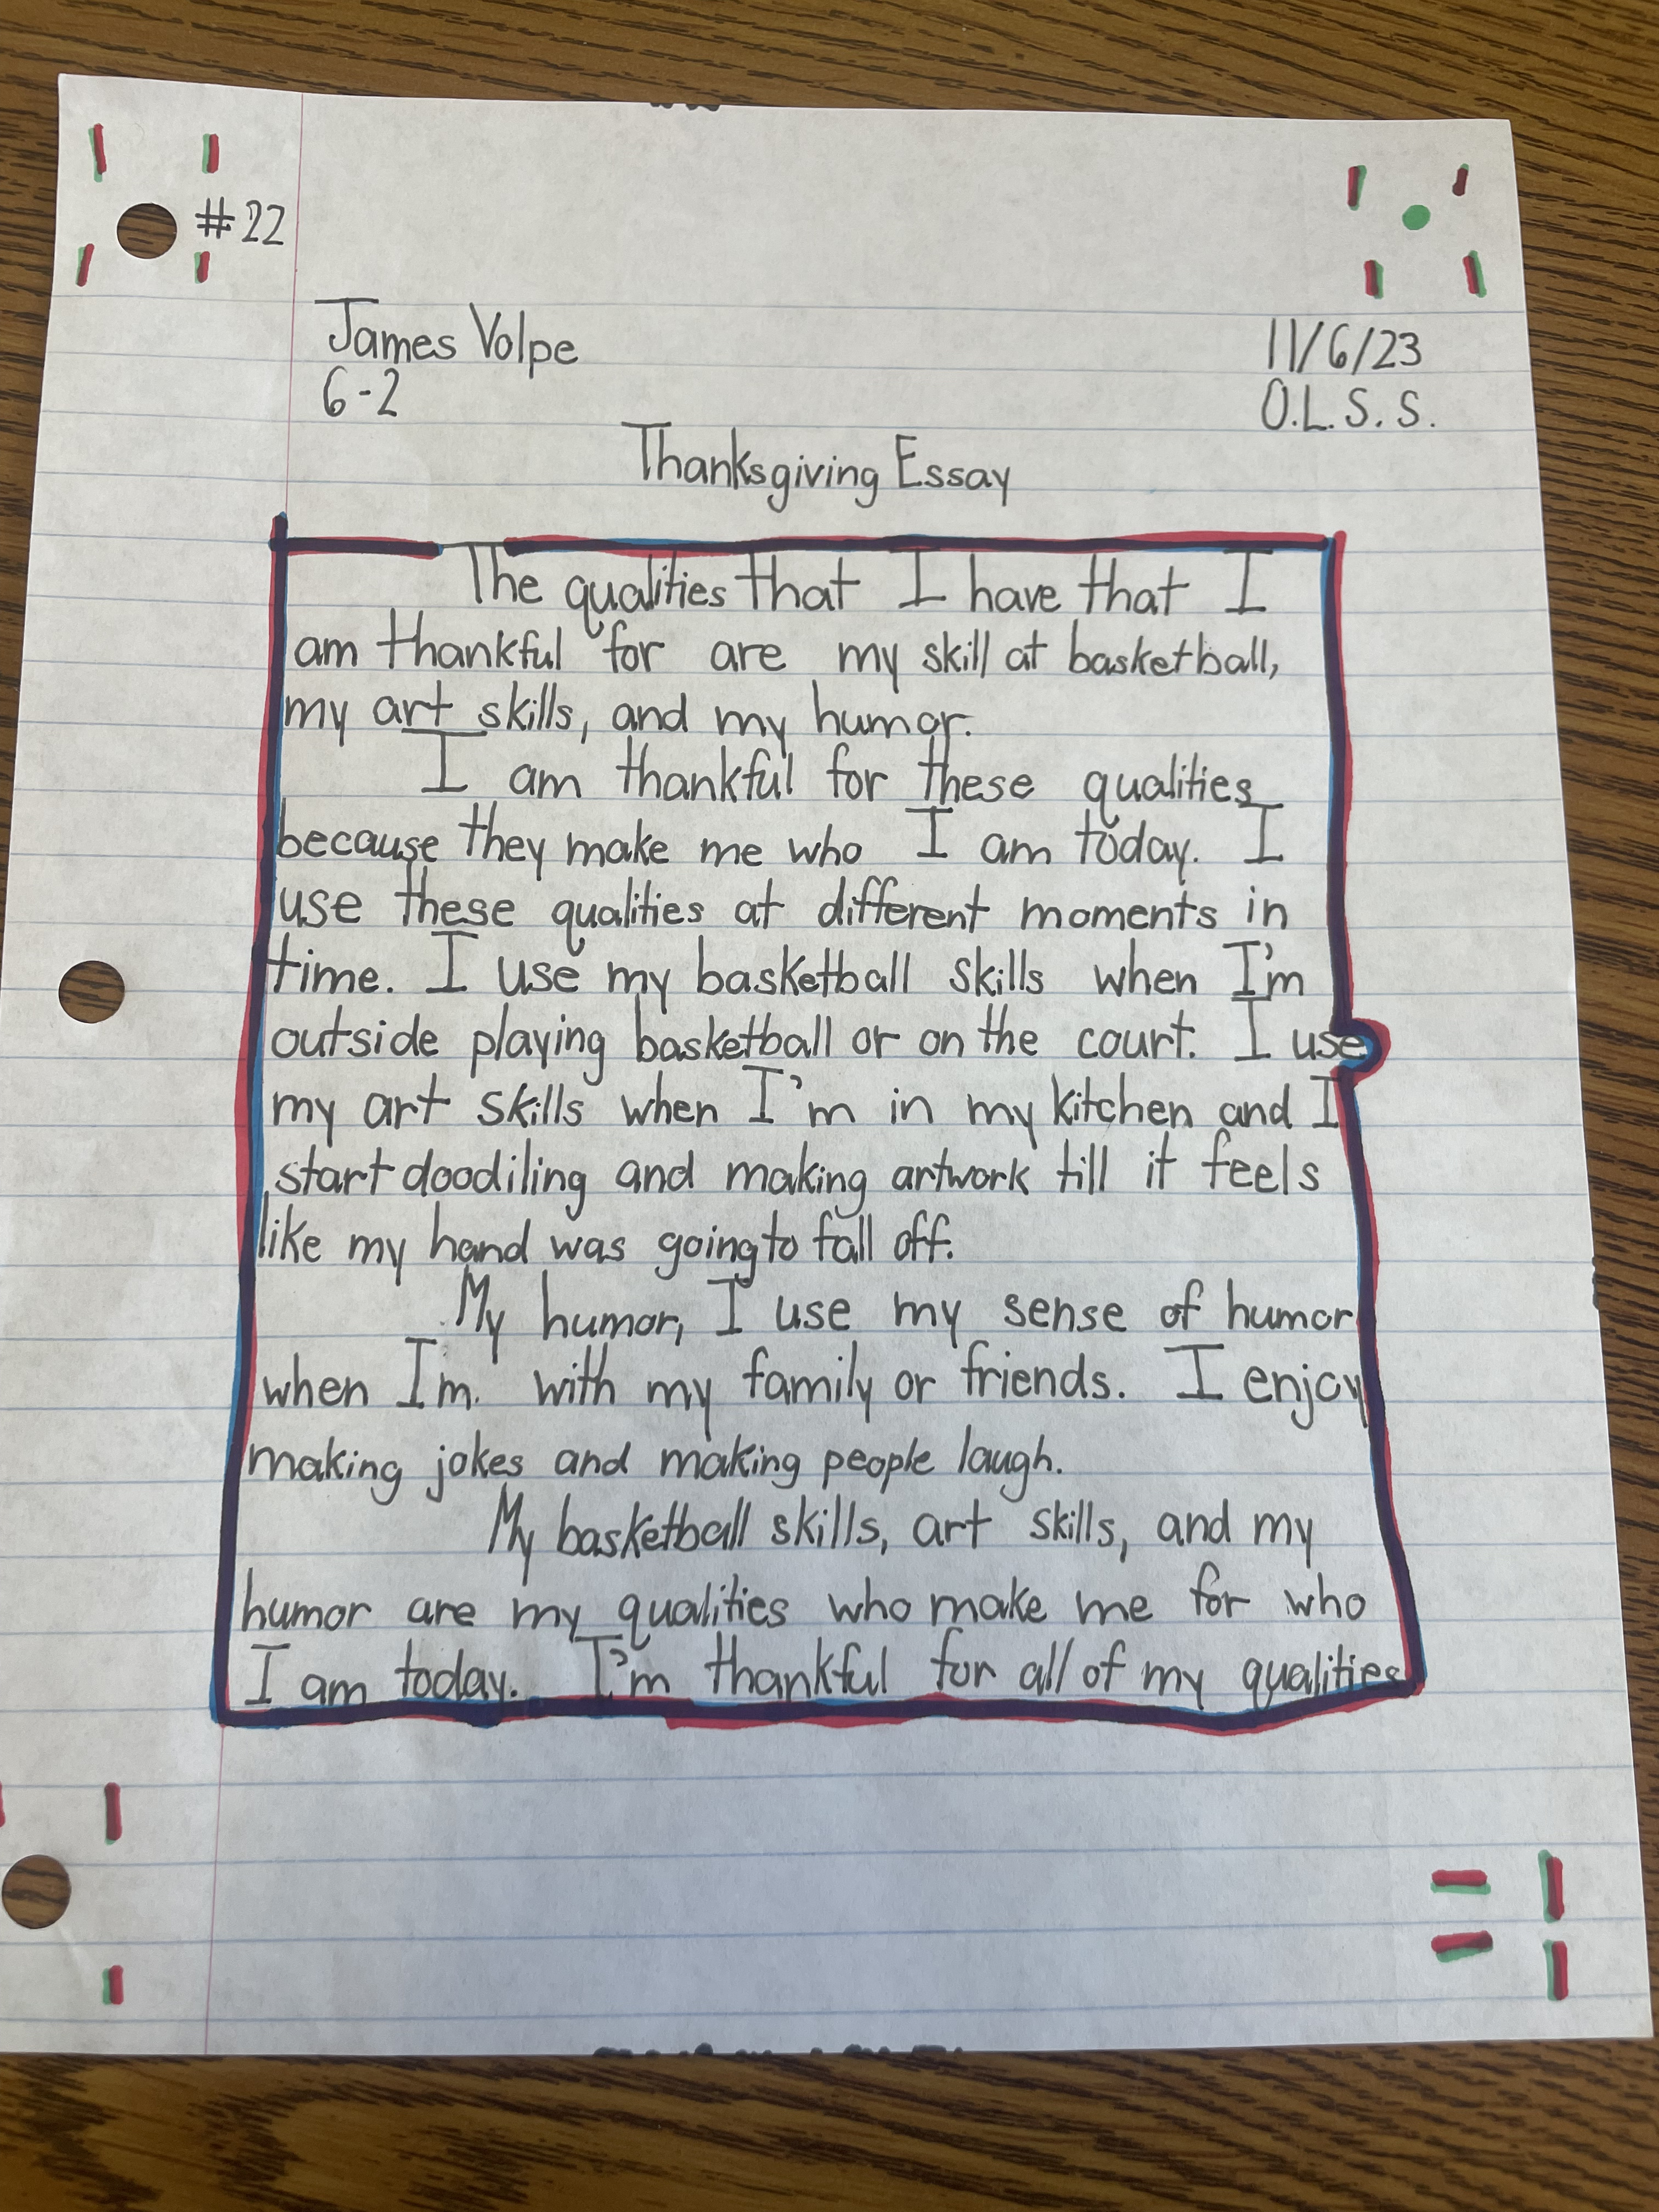 #22
James Volpe
11/6/23
6-2
O.L.S.S.
Thanksgiving Essay
The qualities that I have that I
am thankful for are my skill at basketball,
my art skills, and my humor.
I am thankful for these qualities
because they make me who I am today. I
use these qualities at different moments in
time. I use my basketball skills when I'm
outside playing basketball or on the court. I use
my art skills when I'm in my kitchen and I
start doodiling and making artwork till it feels
like my hand was going to fall off.
My humor, I use my sense of humor
when I'm. with my family or friends. I enjoy
making jokes and making people laugh.
My basketball skills, art skills, and my
humor are my qualities who make me for who
I am today. I'm thankful for all of my qualities